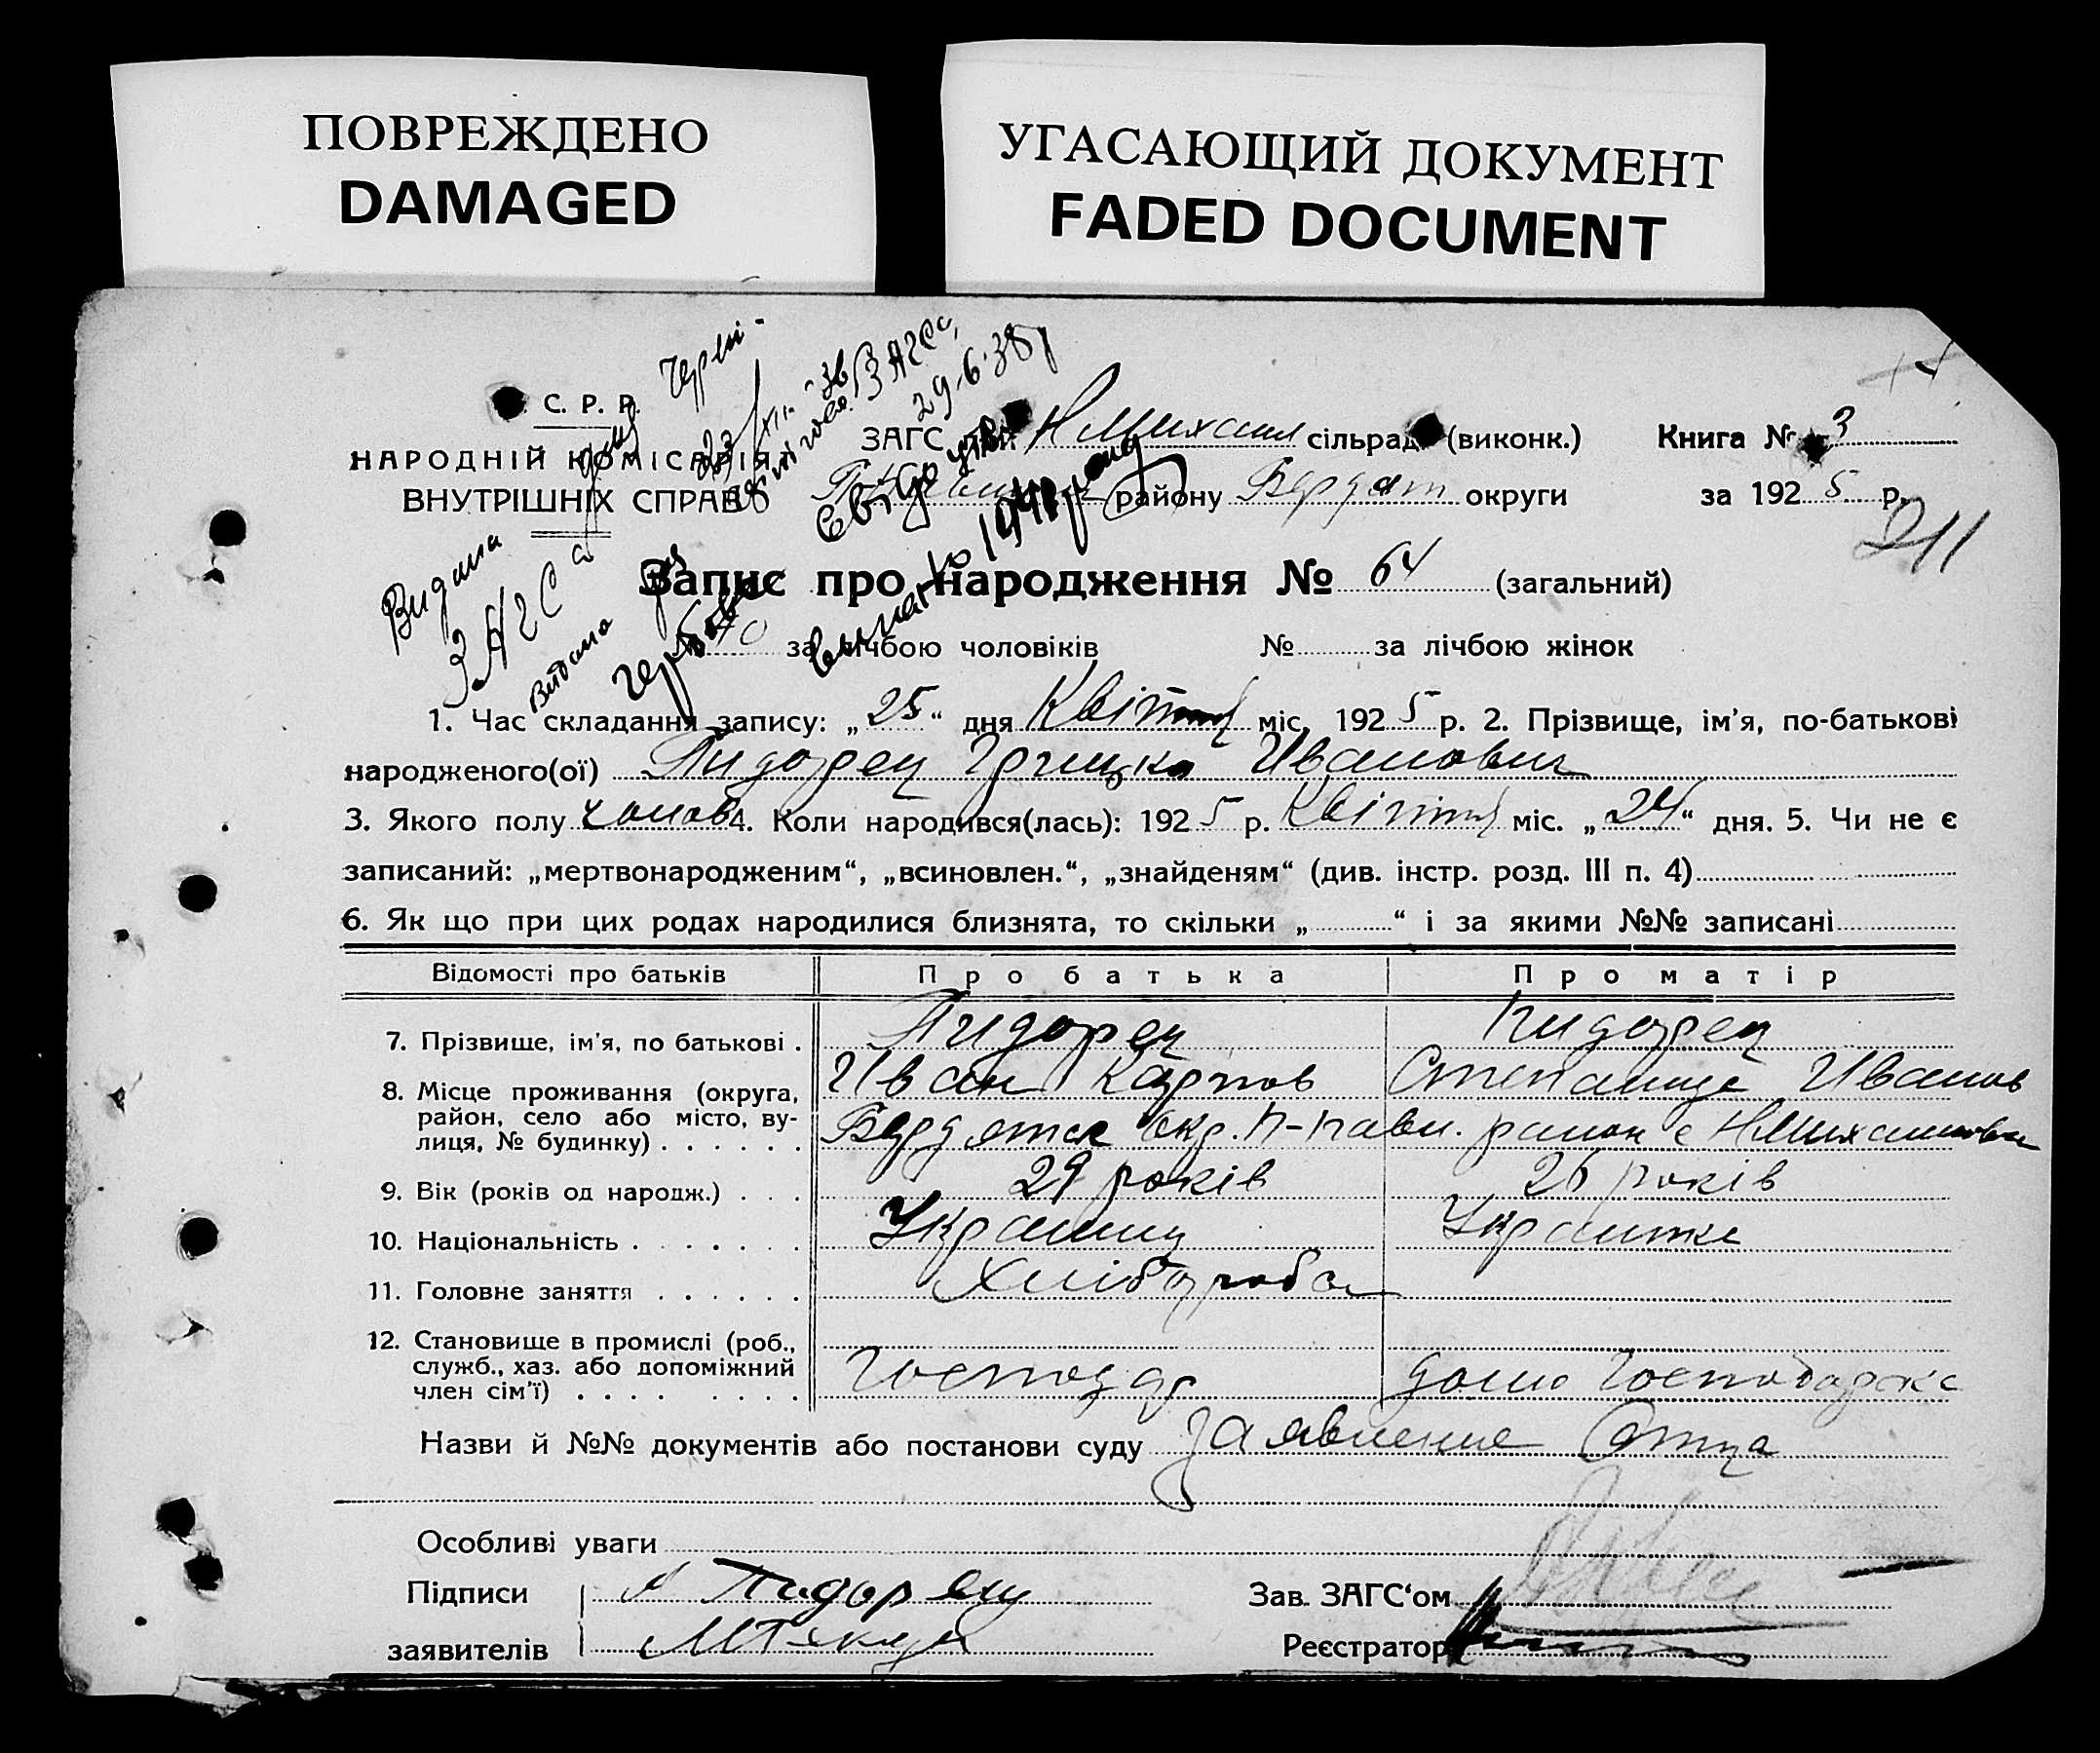 ПОВРЕЖДЕНО
DAMAGED
УГАСАЮЩИЙ ДОКУМЕНТ
FADED DOCUMENT
С. Р. Р.
НАРОДНІЙ КОМІСАРІЯТ
ВНУТРІШНІХ СПРАВ
29.6.38
Видана
ЗАГС
ЗАГС НМихаил сільради (виконк.) Книга № 3
району Бердят округи за 1925 р.
211
Запис про народження № 64 (загальний)
40 за лічбою чоловіків № за лічбою жінок
1. Час складання запису: „25“ дня Квітня міс. 1925 р. 2. Прізвище, ім'я, по-батькові
народженого(ої) Пидорец Грицко Иванович
3. Якого полу чолов 4. Коли народився(лась): 1925 р. Квітня міс. „24“ дня. 5. Чи не є
записаний: „мертвонародженим“, „всиновлен.“, „знайденям“ (див. інстр. розд. III п. 4)
6. Як що при цих родах народилися близнята, то скільки „ “ і за якими №№ записані
Відомості про батьків Про батька Про матір
7. Прізвище, ім'я, по батькові . Пидорец Пидорец
Иван Карпов Степанида Иванов
8. Місце проживання (округа,
район, село або місто, ву-
лиця, № будинку) . . . . . . Бердятск окр. П-павл. район с НМихаиловка
9. Вік (років од народж.) . . . 29 років 26 років
10. Національність . . . . . . . Украинц Украинка
11. Головне заняття . . . . . . Хлібороба
12. Становище в промислі (роб.,
служб., хаз. або допоміжний
член сім'ї) . . . . . . . . Господар дома Господарка
Назви й №№ документів або постанови суду заявление Отца
Особливі уваги
Підписи Пидорец
заявителів
Зав. ЗАГС'ом
Реєстратор